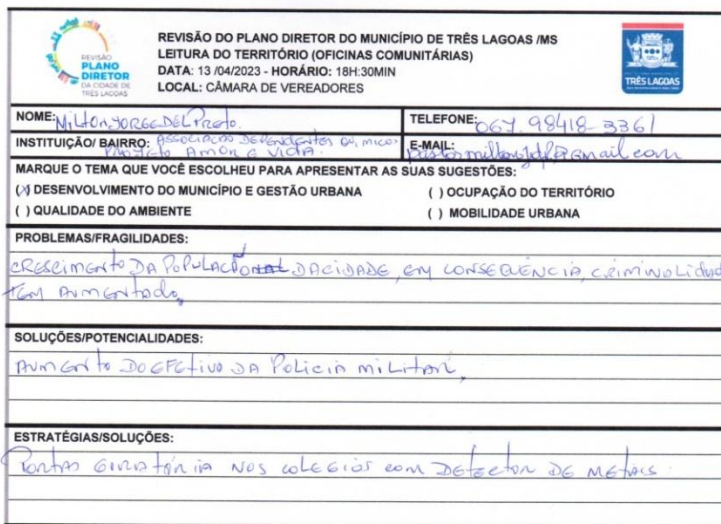 REVISÃO
PLANO
DIRETOR
DA CIDADE DE
TRÊS LAGOAS
REVISÃO DO PLANO DIRETOR DO MUNICÍPIO DE TRÊS LAGOAS /MS
LEITURA DO TERRITÓRIO (OFICINAS COMUNITÁRIAS)
DATA: 13 /04/2023 - HORÁRIO: 18H:30MIN
LOCAL: CÂMARA DE VEREADORES
TRÊS LAGOAS
NOME: MILTON JORGE DEL PRETO.
TELEFONE: 067. 98418-3361
INSTITUIÇÃO/ BAIRRO: ASSOCIACÃO DEPENDENTES QUIMICO
PROJETO AMOR E VIDA.
E-MAIL: pastormiltonjdp@gmail.com
MARQUE O TEMA QUE VOCÊ ESCOLHEU PARA APRESENTAR AS SUAS SUGESTÕES:
(X) DESENVOLVIMENTO DO MUNICÍPIO E GESTÃO URBANA
( ) OCUPAÇÃO DO TERRITÓRIO
( ) QUALIDADE DO AMBIENTE
( ) MOBILIDADE URBANA
PROBLEMAS/FRAGILIDADES:
CRESCIMENTO DA POPULACÃO DA CIDADE, EM CONSEQUÊNCIA, CRIMINOLIDAD
TEM AUMENTADO,
SOLUÇÕES/POTENCIALIDADES:
AUMENTO DO EFETIVO DA POLICIA MILITAR,
ESTRATÉGIAS/SOLUÇÕES:
PORTAS GIRATÓRIA NOS COLEGIOS COM DETECTOR DE METAIS.